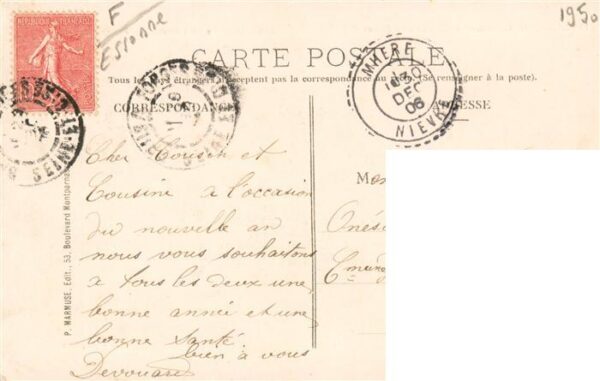 F
Essonne
1950
REPUBLIQUE FRANCAISE
CARTE POSTALE
Tous les pays étrangers n'acceptent pas la correspondance au dos. (Se renseigner à la poste).
CORRESPONDANCE
ADRESSE
MHERE
DEC
06
NIEVRE
SEINE-ET
Cher Cousin et
Cousine à l'occasion
du nouvelle an
nous vous souhaitons
a tous les deux une
bonne année et une
bonne santé
bien à vous
Devouare
Mon
Onési
P. MARMUSE, Edit., 53, Boulevard Montparnas